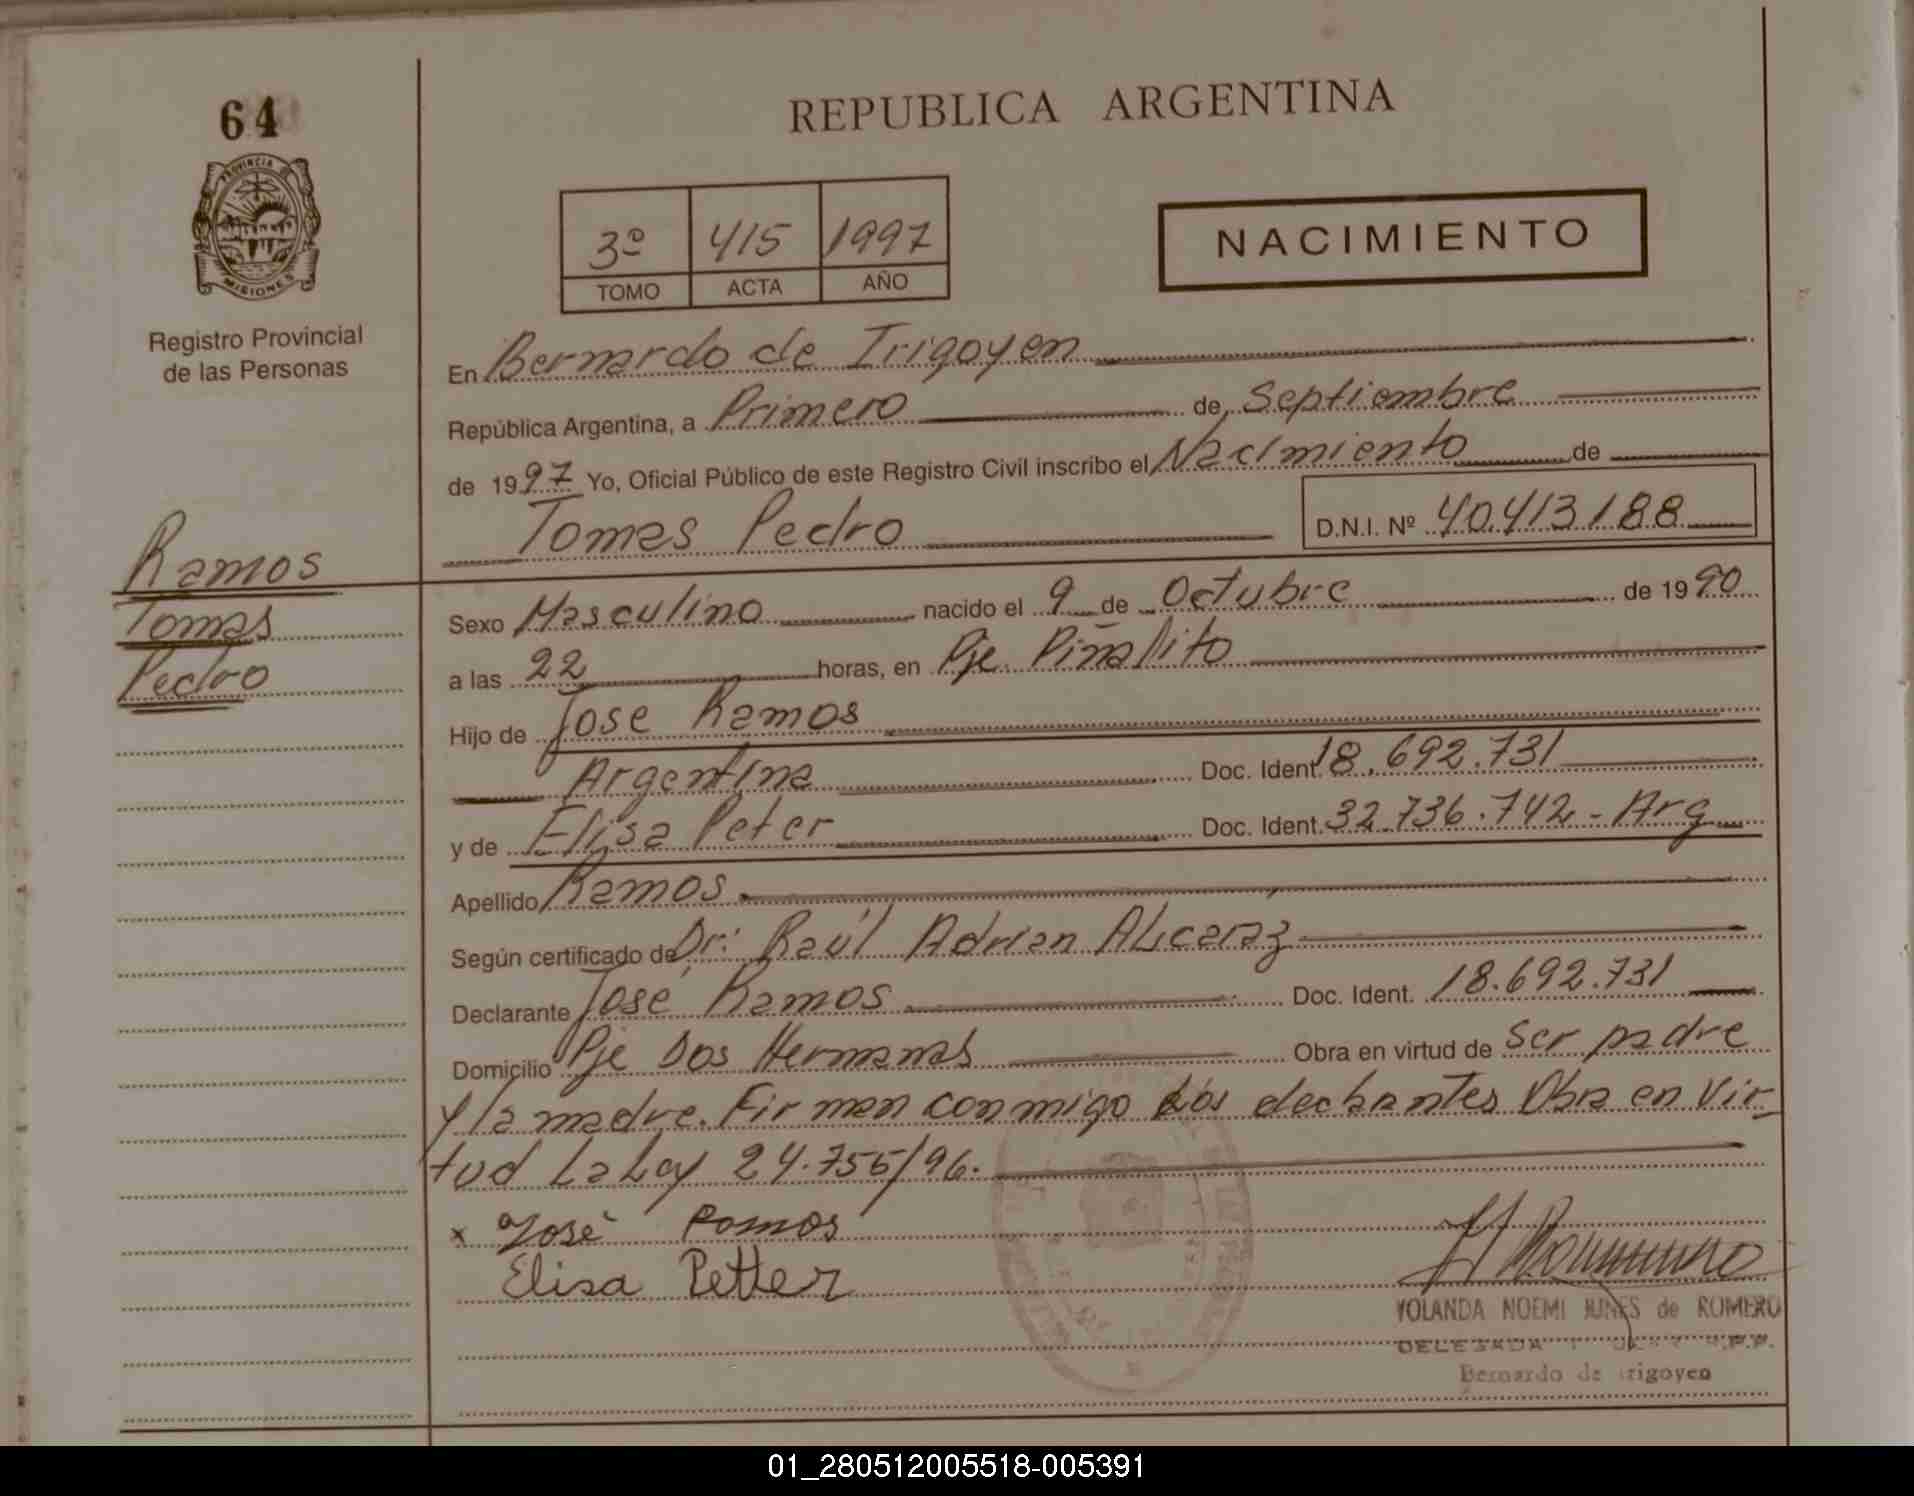 64
PROVINCIA D
MISIONES
Registro Provincial
de las Personas
Ramos
Tomas
Pedro
REPUBLICA ARGENTINA
3º 415 1997
TOMO ACTA AÑO
NACIMIENTO
En Bernardo de Irigoyen
República Argentina, a Primero de Septiembre
de 1997 Yo, Oficial Público de este Registro Civil inscribo el Nacimiento de
Tomas Pedro D.N.I. Nº 40.413.188
Sexo Masculino nacido el 9 de Octubre de 1990
a las 22 horas, en Pje. Piñalito
Hijo de Jose Ramos
Argentina Doc. Ident. 18.692.731
y de Elisa Peter Doc. Ident. 32.736.742 - Arg
Apellido Ramos
Según certificado de Dr: Raúl Adrian Alcaraz
Declarante José Ramos Doc. Ident. 18.692.731
Domicilio Pje Dos Hermanas Obra en virtud de ser padre
y la madre. Firman conmigo Los declarantes Obra en Vir-
tud La Ley 24.755/96.
x José Ramos
Elisa Petter
YOLANDA NOEMI de ROMERO
DELEGADA
Bernardo de Irigoyen
01_280512005518-005391